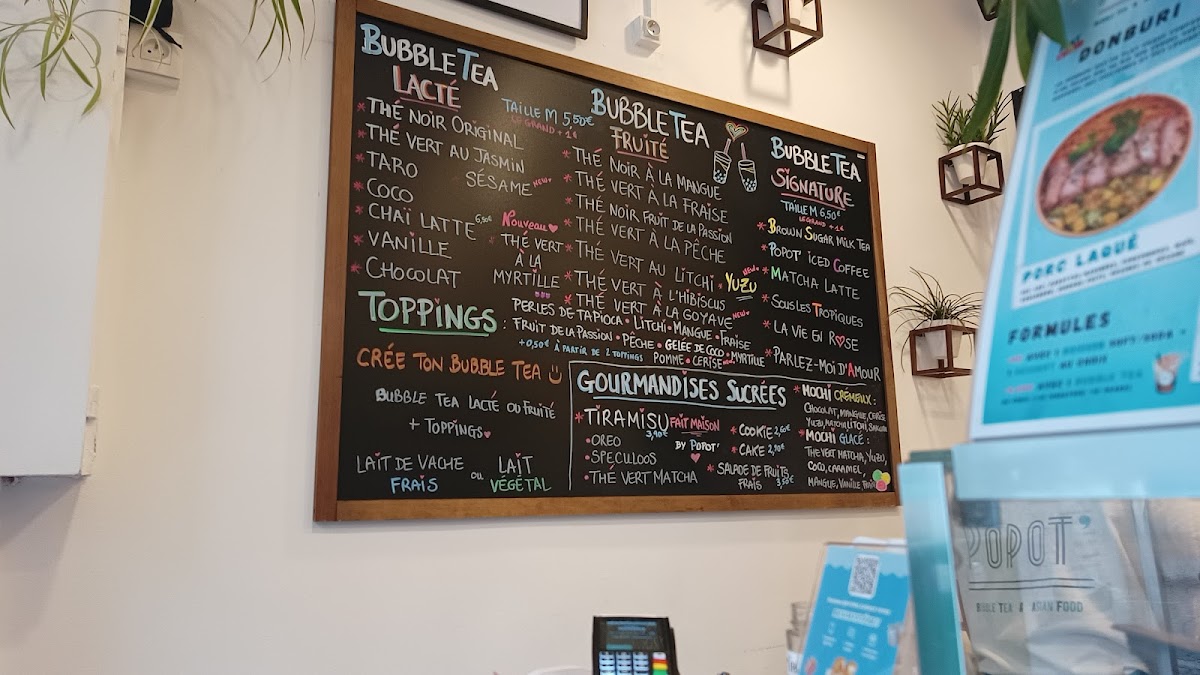 BUBBLE TEA
LACTÉ
TAILLE M 5,50€
LE GRAND + 1€
* THÉ NOIR ORIGINAL
* THÉ VERT AU JASMIN
* TARO
SÉSAME NEW
* COCO
* CHAÏ LATTE 6,50€
* VANILLE
* CHOCOLAT
Nouveau
THÉ VERT
À LA
MYRTILLE
BUBBLE TEA
FRUITÉ
* THÉ NOIR À LA MANGUE
* THÉ VERT À LA FRAISE
* THÉ NOIR FRUIT DE LA PASSION
* THÉ VERT À LA PÊCHE
* THÉ VERT AU LITCHI
* YUZU NEW
* THÉ VERT À L'HIBISCUS
* THÉ VERT À LA GOYAVE NEW
BUBBLE TEA
SIGNATURE
TAILLE M 6,50€
LE GRAND + 1€
* BROWN SUGAR MILK TEA
* POPOT ICED COFFEE
* MATCHA LATTE
* SOUS LES TROPIQUES
* LA VIE EN ROSE
* PARLEZ-MOI D'AMOUR
TOPPINGS :
PERLES DE TAPIOCA • LITCHI • MANGUE • FRAISE
FRUIT DE LA PASSION • PÊCHE • GELÉE DE COCO • MYRTILLE
+0,50€ À PARTIR DE 2 TOPPINGS
POMME • CERISE
CRÉE TON BUBBLE TEA
BUBBLE TEA LACTÉ OU FRUITÉ
+ TOPPINGS
LAIT DE VACHE
FRAIS
OU
LAIT
VÉGÉTAL
GOURMANDISES SUCRÉES
* TIRAMISU FAIT MAISON
3,90€
BY POPOT'
• OREO
• SPECULOOS
• THÉ VERT MATCHA
* COOKIE 2,60€
* CAKE 2,90€
* SALADE DE FRUITS
FRAIS 3,50€
* MOCHI CRÉMEUX :
CHOCOLAT, MANGUE, CERISE
YUZU, MATCHA, LITCHI, SAKURA
* MOCHI GLACÉ :
THÉ VERT MATCHA, YUZU,
COCO, CARAMEL,
MANGUE, VANILLE,
DONBURI
PORC LAQUÉ
FORMULES
POPOT'
BUBBLE TEA & ASIAN FOOD